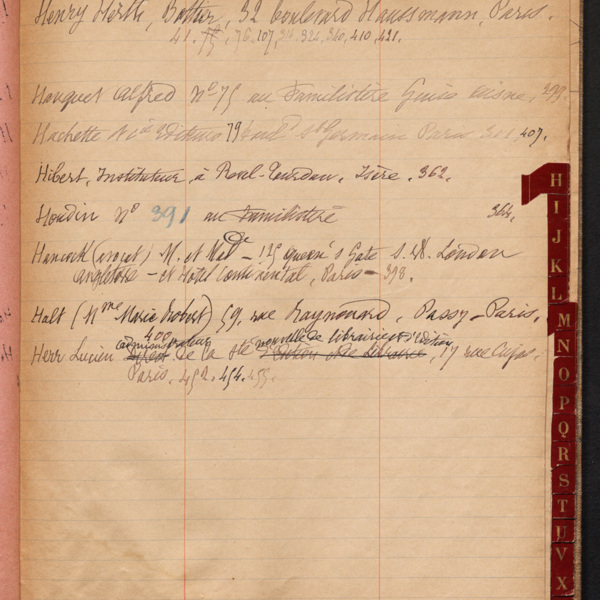 Henry Herth, Bottier, 32 boulevard Haussmann, Paris.
41. 75, 76, 107, 324, 340, 410, 421.
Hauquet Alfred Nº 75 au Familistère Guise Aisne,
Hachette & Cie Editeurs 79 boulд St Germain Paris 301, 407.
Hibert, Instituteur, à Revel-Tourdan, Isère, 362.
Houdin Nº 391 au Familistère 364.
Hancock (voyez) M. et Made – 125 Queen's Gate S.W. London
Angleterre – et Hotel Continental, Paris – 398.
Halt (Mme Marie Robert) 59, rue Raynouard, Passy-Paris.
400
administrateur nouvelle de librairie et d'édition
Herr Lucien de la Sté, 17 rue Cujas,
Paris. 452. 454. 455.
H
I
J
K
L
M
N
O
P
Q
R
S
T
U
V
X